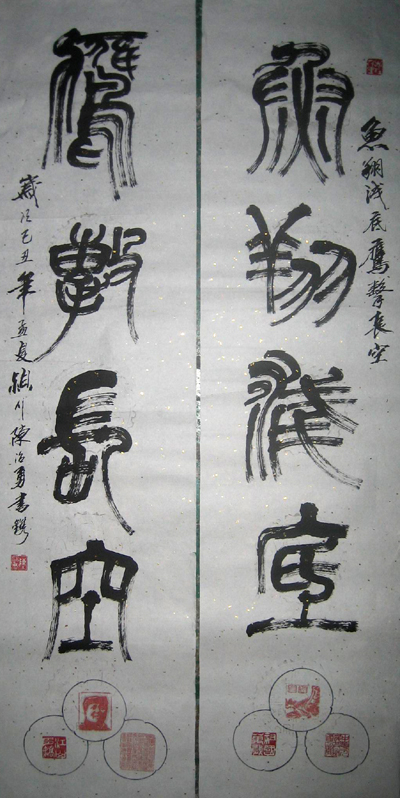 魚翔浅底鷹擊長空
魚翔淺底
鷹擊長空
歲次己丑年孟夏潁川陳治勇書鐫